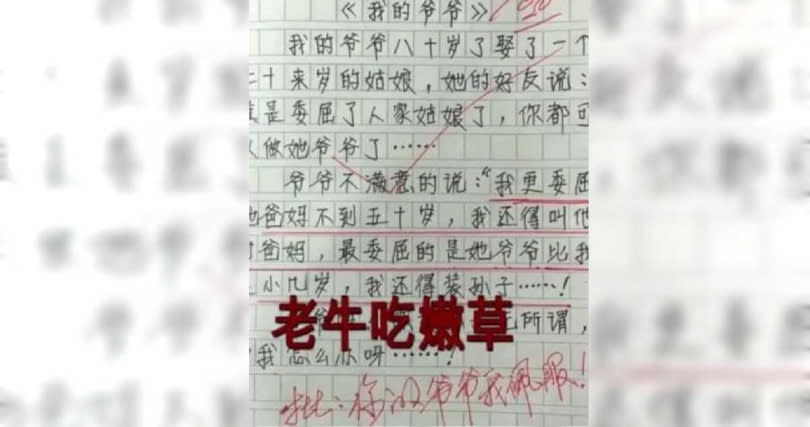 《我的爷爷》
我的爷爷八十岁了娶了一个
二十来岁的姑娘，她的好友说：
是委屈了人家姑娘了，你都可
做她爷爷了……
爷爷不满意的说：“我更委屈
她爸妈不到五十岁，我还得叫他
爸妈，最委屈的是她爷爷比我
小几岁，我还得装孙子……！
老牛吃嫩草
无所谓，
我怎么办呀……！
批：你的爷爷我佩服！